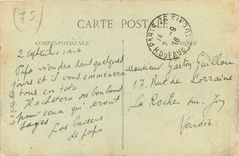 (75)
CARTE POSTALE
CORRESPONDANCE
2 Septembre
Papa viendra dans quelques
jours et il vous emmenera
tous en auto
Il achetera des bonbons
pour ceux qui seront
sages
Les baisers
de papa
Monsieur Gaston Guillou
17, Rue de Lorraine
La Roche sur Yon
Vendée